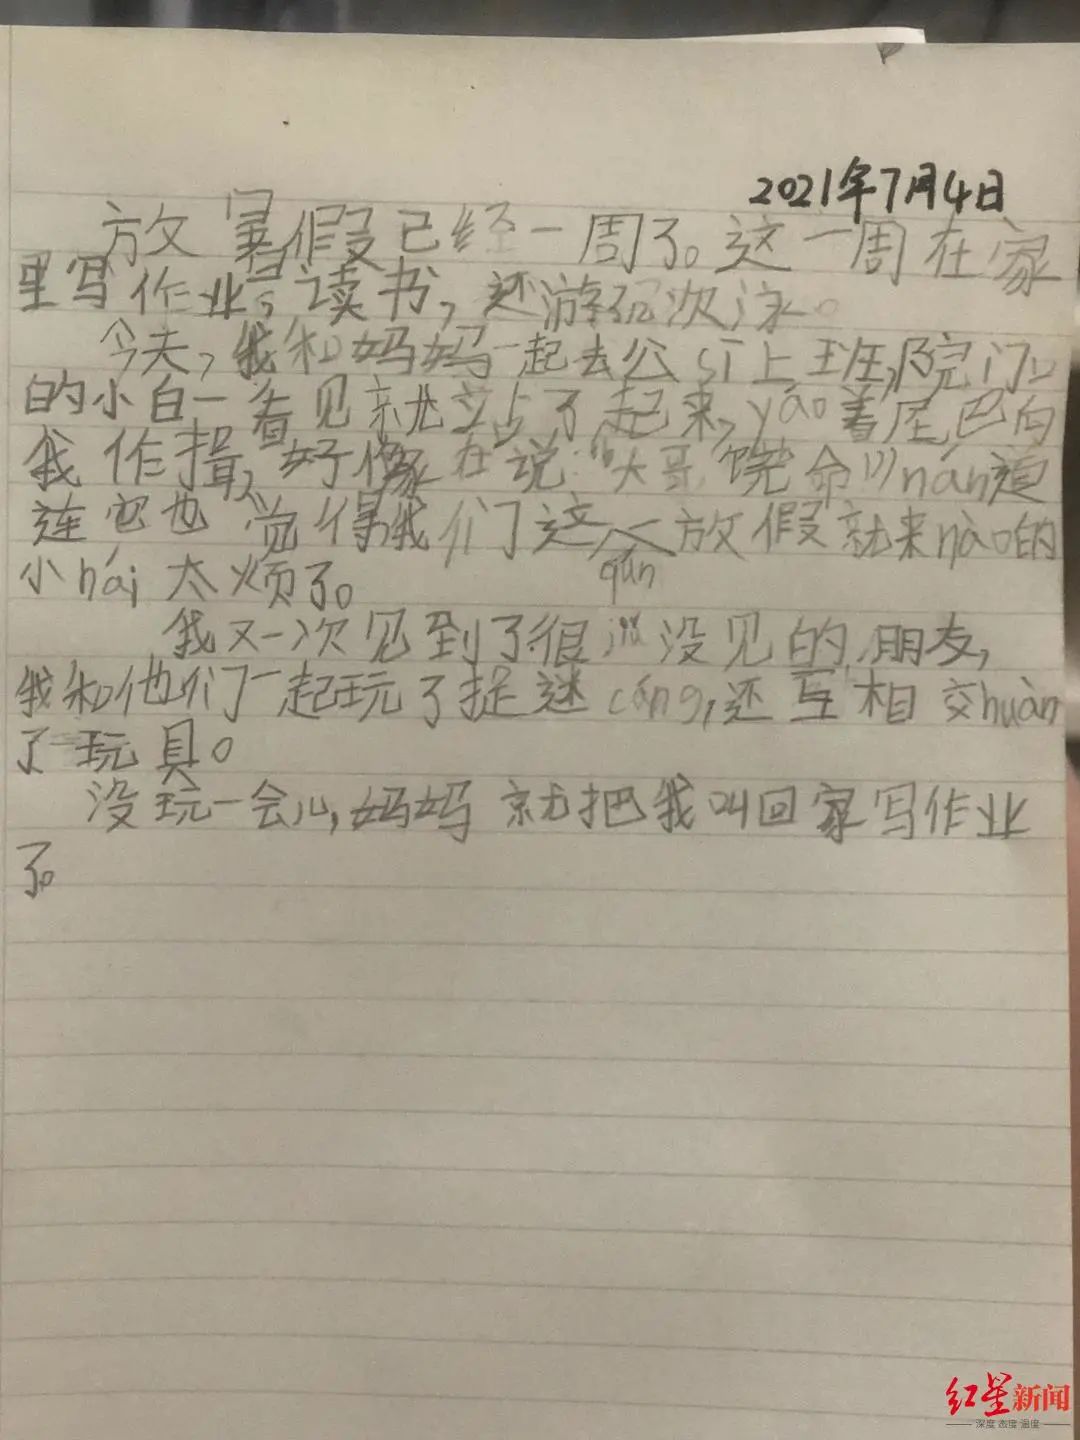 2021年7月4日
放暑假已经一周了。这一周在家
里写作业,读书,还游了次泳。
今天,我和妈妈一起去公sī上班,院门口
的小白一看见就立占了起来,yáo着尾巴向
我作揖,好像在说:“大哥饶命!”nán道
连它也觉得我们这qún放假就来nào的
小hái太烦了。
我又一次见到了很没见的朋友,
我和他们一起玩了捉迷cáng,还互相交huàn
了玩具。
没玩一会儿,妈妈就把我叫回家写作业
了。
红星新闻
深度 态度 温度